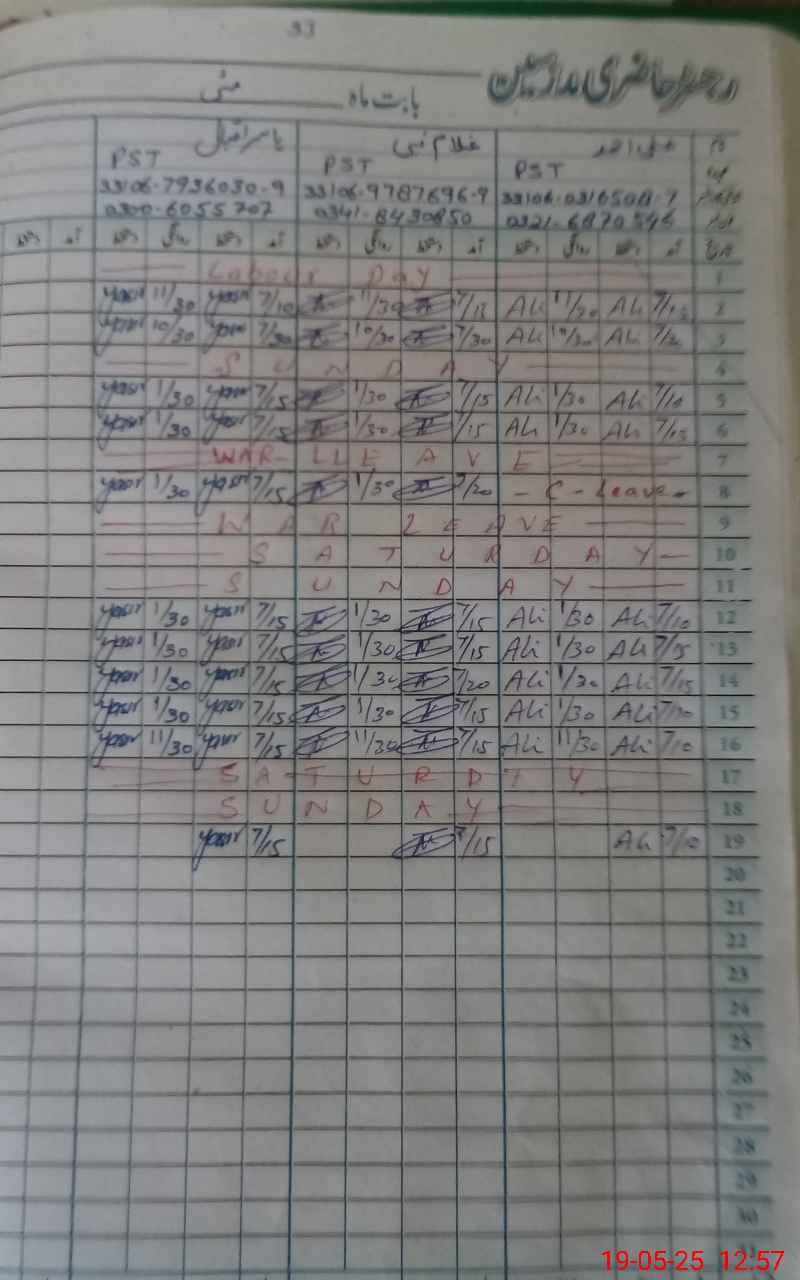 33
رجسٹر حاضری مدرسین
بابت ماہ مئی
نام علی احمد غلام نبی یاسر اقبال
عہدہ PST PST PST
33106-0316508-7 33106-9787696-9 33106-7936030-9
0321-6870546 0341-8430850 0300-6055707
تاریخ آمد دستخط روانگی دستخط آمد دستخط روانگی دستخط آمد دستخط روانگی دستخط آمد دستخط
Labour Day 1
Yasir 11/30 Yasir 7/10 N 11/30 N 7/15 Ali 11/30 Ali 7/15 2
Yasir 10/30 Yasir 7/30 N 10/30 N 7/30 Ali 10/30 Ali 3
SUNDAY 4
Yasir 1/30 Yasir 7/15 N 1/30 N 7/15 Ali 1/30 Ali 7/10 5
Yasir 1/30 Yasir 7/15 N 1/30 N 7/15 Ali 1/30 Ali 7/15 6
WAR LLEAVE 7
Yasir 1/30 Yasir 7/15 N 1/30 N 7/20 - C - Leave - 8
WAR LEAVE 9
SATURDAY 10
SUNDAY 11
Yasir 1/30 Yasir 7/15 N 1/30 N 7/15 Ali 1/30 Ali 7/10 12
Yasir 1/30 Yasir 7/15 N 1/30 N 7/15 Ali 1/30 Ali 7/15 13
Yasir 1/30 Yasir 7/15 N 1/30 N 7/20 Ali 1/30 Ali 7/15 14
Yasir 1/30 Yasir 7/15 N 1/30 N 7/15 Ali 1/30 Ali 7/10 15
Yasir 11/30 Yasir 7/15 N 11/30 N 7/15 Ali 11/30 Ali 7/10 16
SATURDTY 17
SUNDAY 18
Yasir 7/15 N 7/15 Ali 7/10 19
20
21
22
23
24
25
26
27
28
29
30
31
19-05-25 12:57